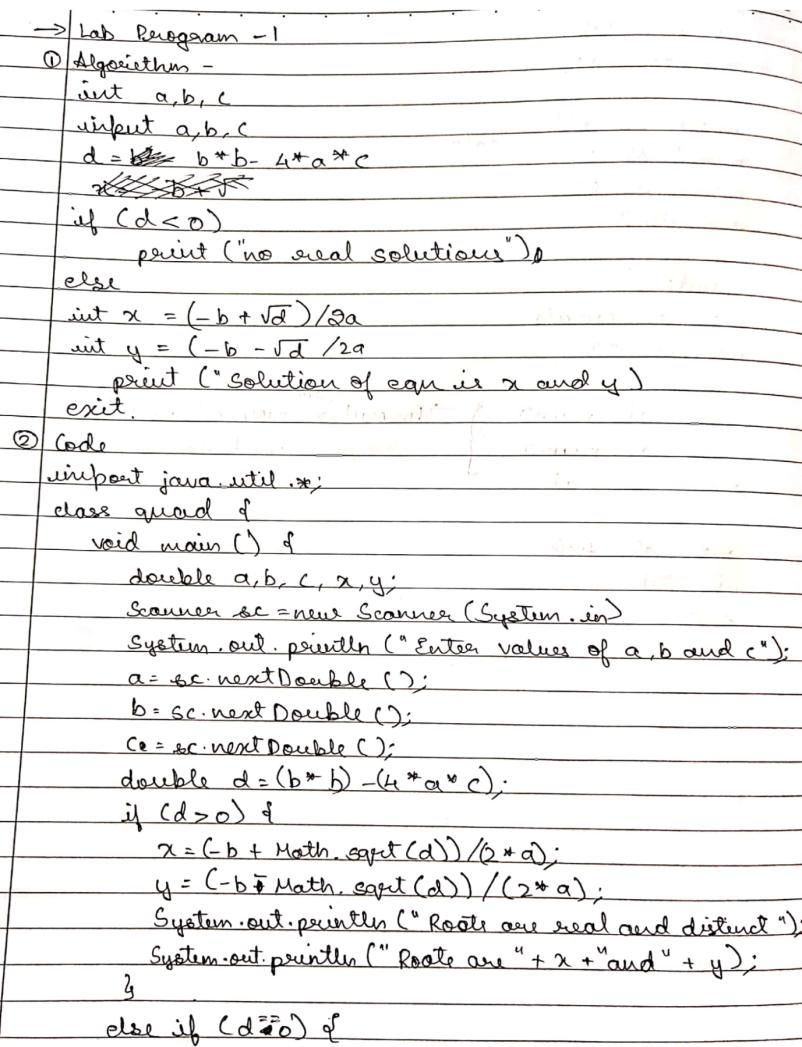 → Lab Program - 1
① Algorithm -
int a, b, c
input a, b, c
d = b*b - 4*a*c
if (d<0)
print ("no real solutions")
else
int x = (-b + √d)/2a
int y = (-b - √d /2a
print ("Solution of eqn is x and y)
exit.
② Code
import java.util.*;
class quad {
void main () {
double a, b, c, x, y;
Scanner sc = new Scanner (System.in)
System.out.println ("Enter values of a, b and c");
a = sc.nextDouble ();
b = sc.nextDouble ();
c = sc.nextDouble ();
double d = (b*b) - (4*a*c);
if (d>0) {
x = (-b + Math.sqrt (d)) / (2*a);
y = (-b - Math.sqrt (d)) / (2*a);
System.out.println ("Roots are real and distinct");
System.out.println ("Roots are" + x + "and" + y);
}
else if (d==0) {